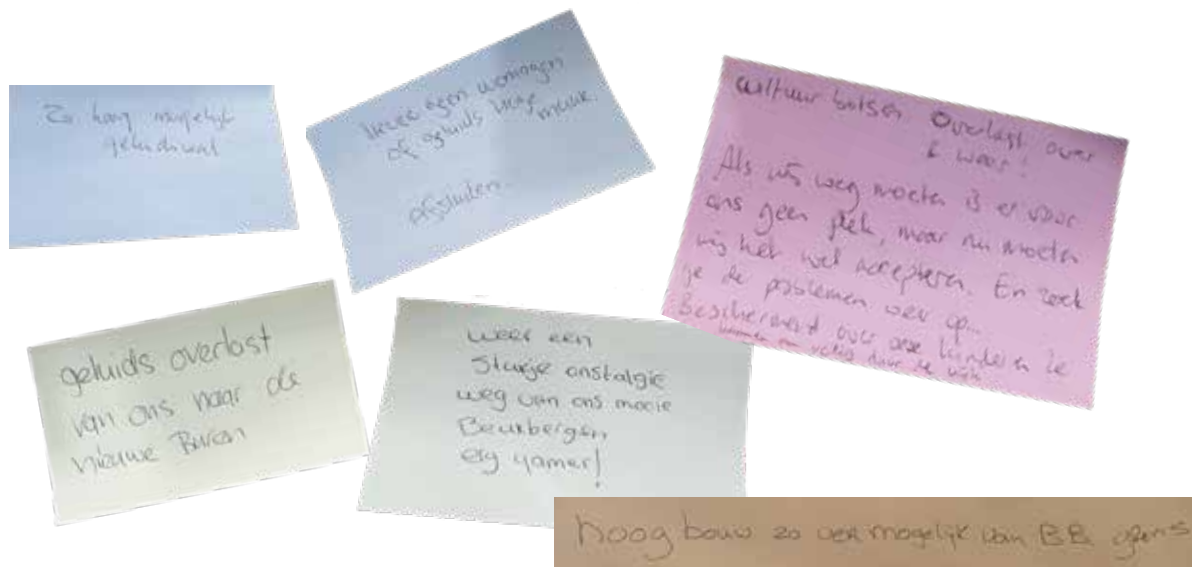 Zo hoog mogelijk
geluidswal
liever geen woningen
of geluids
afsluiten.
cultuur botsen Overlast over
& weer!
Als wij weg moeten is er voor
ons geen plek, maar nu moeten
wij het wel accepteren. En zoek
je de problemen weer op...
Beschermend over onze kinderen ze
door de wijk
geluids overlast
van ons naar de
nieuwe Buren
weer een
Stukje onstalgie
weg van ons mooie
Beukbergen
erg yamer!
hoog bouw zo ver mogelijk van BB grens